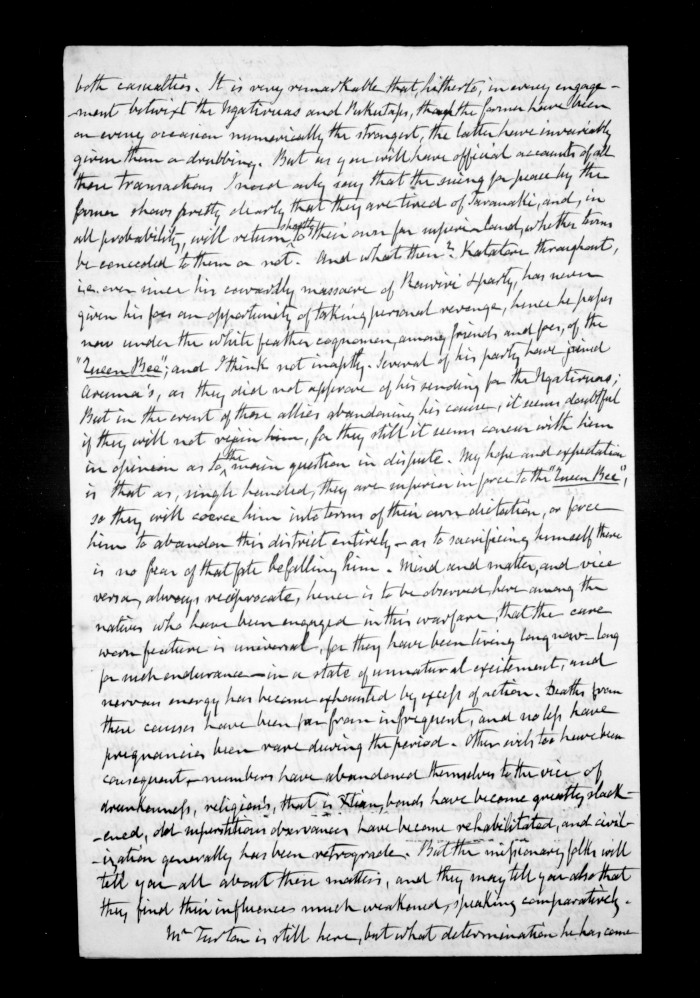 both casualties. It is very remarkable that, hitherto, in every engage-
-ment betwixt the Ngatiruas and Puketaps, though the former have been
on every occasion numerically the strongest, the latter have invariably
given them a drubbing. But as you will have official accounts of all
these transactions I need only say that the suing for peace by the
former shows pretty clearly that they are tired of Taranaki, and, in
all probability, will return shortly to their own far superior land, whether terms
be conceded to them or not. And what then? Katatore throughout,
i.e. ever since his cowardly massacre of Rawiri & party, has never
given his foes an opportunity of taking personal revenge, hence he passes
now under the white feather cognomen, among friends and foes, of the
"Queen Bee"; and I think not inaptly. Several of his party have joined
Arama's, as they did not approve of his sending for the Ngatiruas;
But in the event of those allies abandoning his cause, it seems doubtful
if they will not rejoin him, for they still it seems concur with him
in opinion as to the main question in dispute. My hope and expectation
is that as, single handed, they are superior in force to the "Queen Bee",
so they will coerce him into terms of their own dictation, or force
him to abandon this district entirely - as to sacrificing himself there
is no fear of that fate befalling him. Mind and matter, and vice
versa, always reciprocate, hence is to be observed, here among the
natives who have been engaged in this warfare, that the care
worn feature is universal, for they have been living long now - long
for such endurance - in a state of unnatural excitement, and
nervous energy has become exhausted by excess of action. Deaths from
these causes have been far from infrequent, and no less have
pregnancies been rare during the period. Other evils too have been
consequent - numbers have abandoned themselves to the vice of
drunkenness, religious, that is Xtian, bonds have become greatly slack-
-ened, old superstitious observances have become rehabilitated, and civil-
-ization generally has been retrograde. But the missionary folks will
tell you all about these matters, and they may tell you also that
they find their influences much weakened, speaking comparatively.
Mr Turton is still here, but what determination he has come